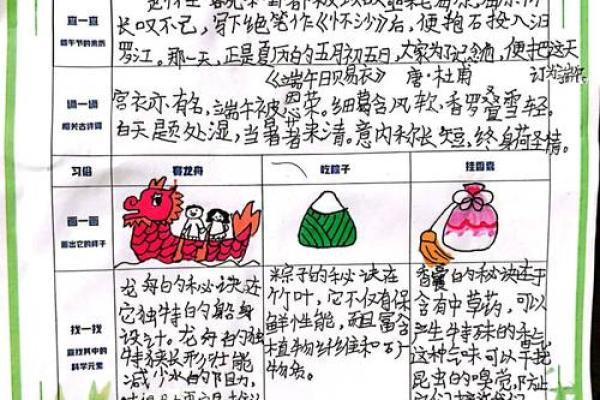 查一查
端午节的来历
长叹不已,写下绝笔作《怀沙》后,便抱石投入汨
罗江。那一天,正是夏历的五月初五日,大家为了纪念他,便把这天
订为端午
《端午日赐衣》 唐·杜甫
诵一诵
相关古诗词
宫衣亦有名,端午被恩荣。细葛含风软,香罗叠雪轻。
自天题处湿,当暑著来清。意内称长短,终身荷圣情。
习俗
赛龙舟
吃粽子
挂香囊
画一画
画出它的样子
找一找
查找其中的
科学元素
龙舟的秘诀在
它独特的船身
设计。龙舟的独
特狭长形状能
减少水的阻力,
粽子的秘诀在
竹叶,它不仅有保
鲜性能,而且富含
植物纤维和矿
物质。
香囊的秘诀在于
含有中草药,可以
产生特殊的香气
这种气味可以干扰
昆虫的嗅觉,防止